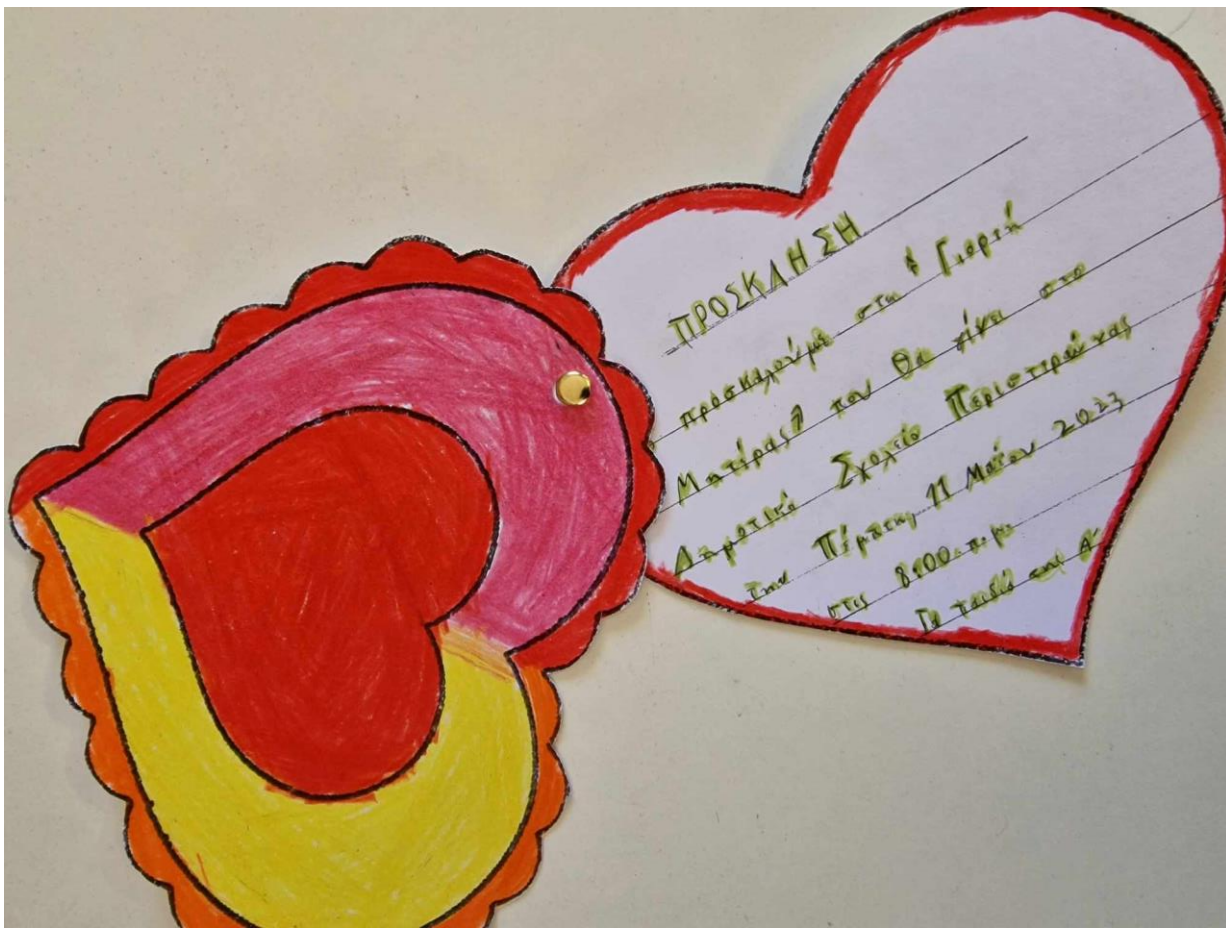 ΠΡΟΣΚΛΗΣΗ
προσκαλούμε στη Γιορτή
Μητέρας που θα γίνει στο
Δημοτικό Σχολείο Περιστερώνας
την Πέμπτη 11 Μαΐου 2023
στις 8:00 π.μ.
Τα παιδιά της Α'